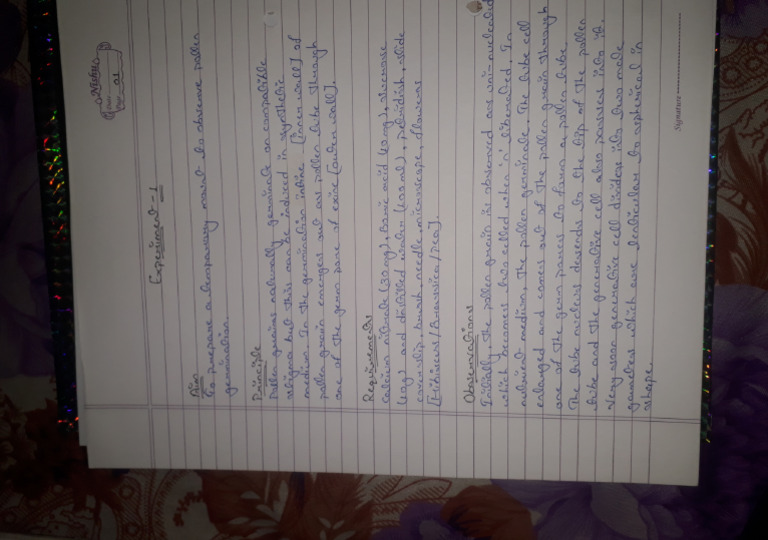 Page 01
Experiment - 1
Aim
To prepare a temporary mount to observe pollen
germination.
Principle
Pollen grains naturally germinate on compatible
stigma but this can be induced in synthetic
medium. In the germination intine [inner wall] of
pollen grain emerges out as pollen tube through
one of the germ pore of exine [outer wall].
Requirements
Calcium nitrate (30mg), Boric acid (10mg), sucrose
(10g) and distilled water (100ml), petridish, slide
coverslip, brush needle, microscope, flowers
[Hibiscus/Brassica/pea].
Observations
Initially, the pollen grain is observed are uni-nucleated
which becomes two celled when it liberated. In
nutrient medium, the pollen germinate. The tube cell
enlarged and comes out of the pollen grain through
one of the germ pores to form a pollen tube.
The tube nucleus descends to the tip of the pollen
tube and the generative cell also passes into it.
Very soon generative cell divides into two male
gametes which are lenticular to spherical in
shape.
Signature